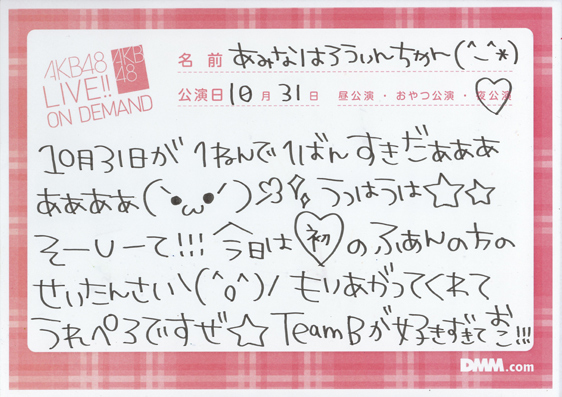 AKB48
LIVE!!
ON DEMAND
AKB
48
名前 あみなはろうぃんちゃん(^ー^*)
公演日 10月31日 昼公演・おやつ公演・夜公演
10月31日が1ねんで1ばんすきだあああ
ああああ(｀・ω・´)うっはうは☆☆
そーして!!!今日は初のふぁんの方の
せいたんさい\(^o^)/もりあがってくれて
うれぺろですぜ☆TeamBが好きすぎておこ!!!
DMM.com